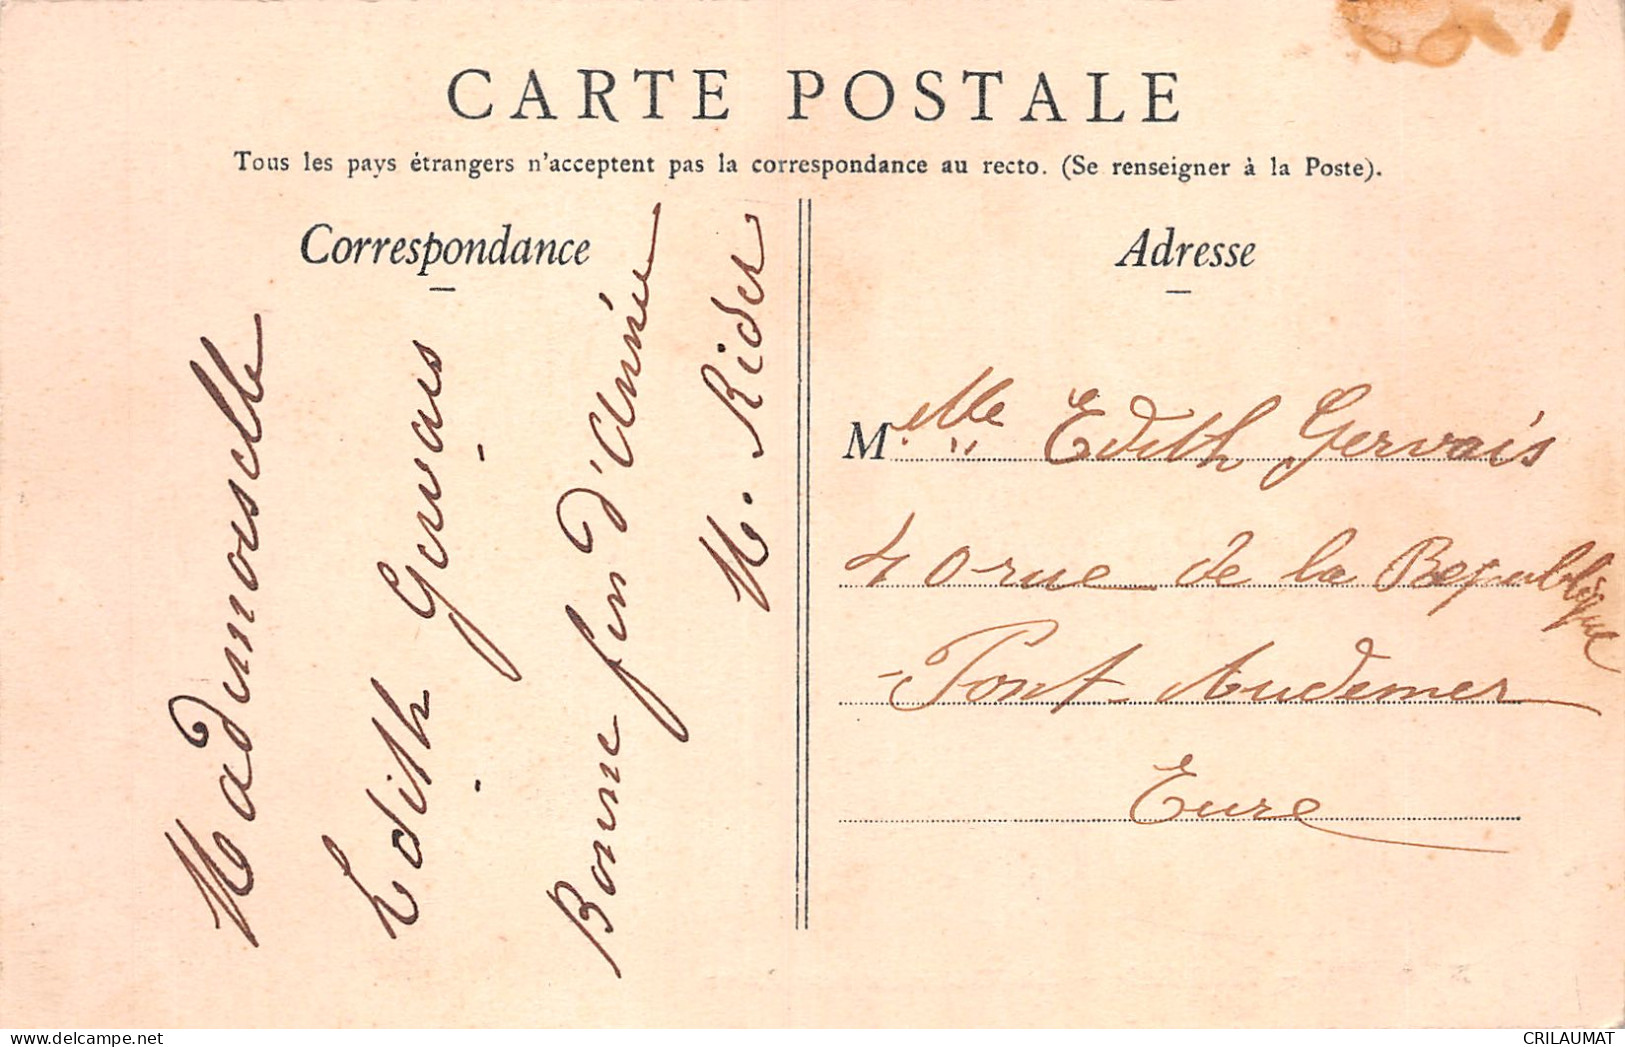 CARTE POSTALE
Tous les pays étrangers n'acceptent pas la correspondance au recto. (Se renseigner à la Poste).
Correspondance
Mademoiselle
Edith Gervais
Bonne fin d'Année
M. Rider
Adresse
Melle Edith Gervais
40 rue de la Republique
Pont-Audemer
Eure
CRILAUMAT